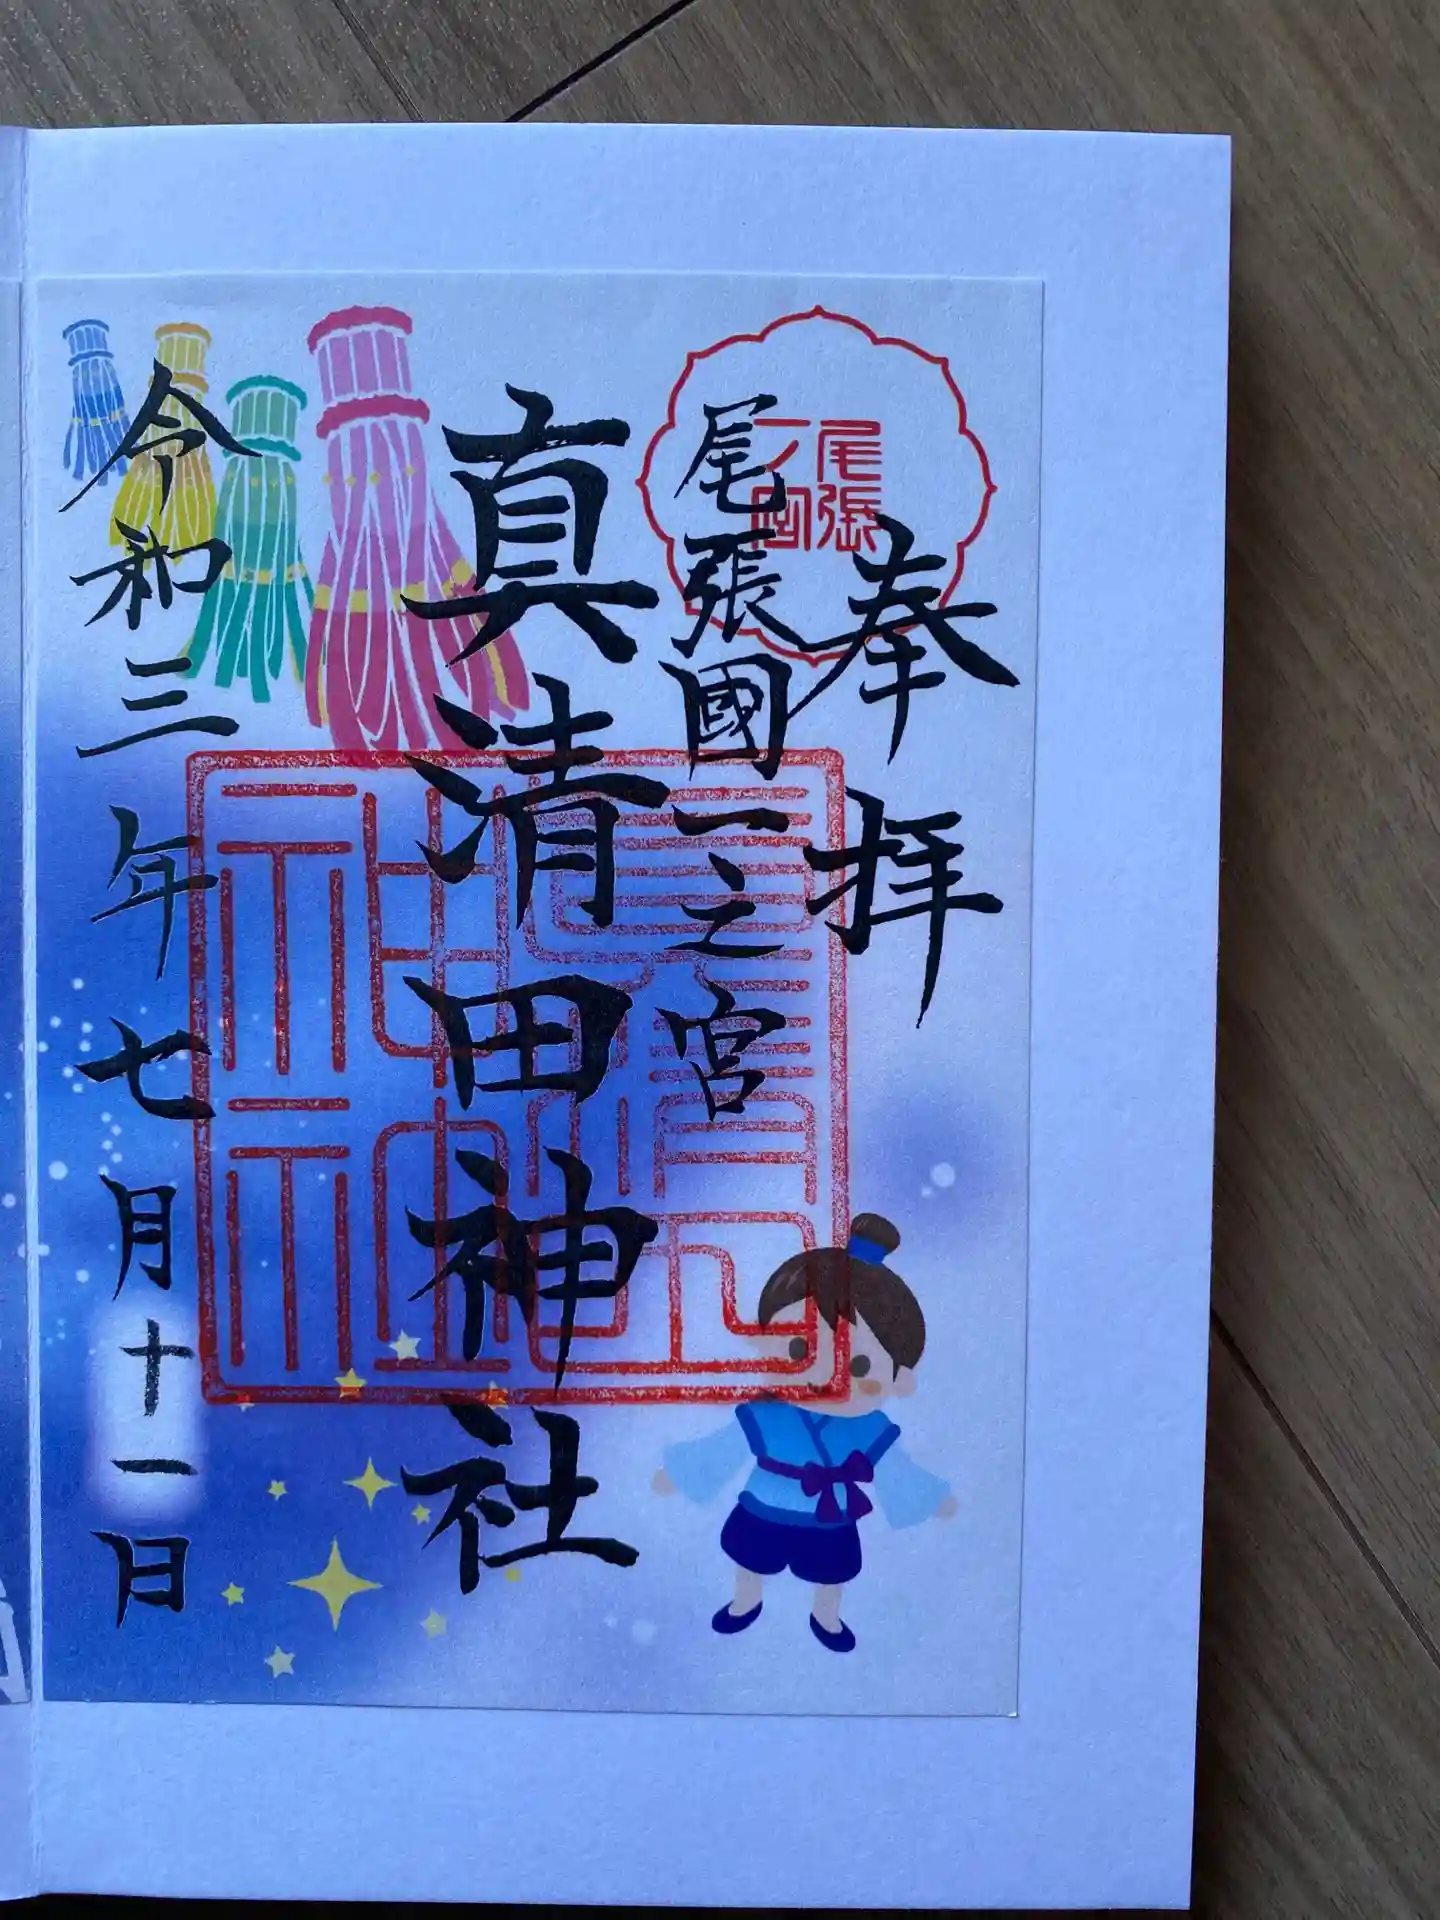 奉拝
尾張國一之宮
尾張
一ノ宮
真清田神社
真清田
神社
令和三年七月十一日